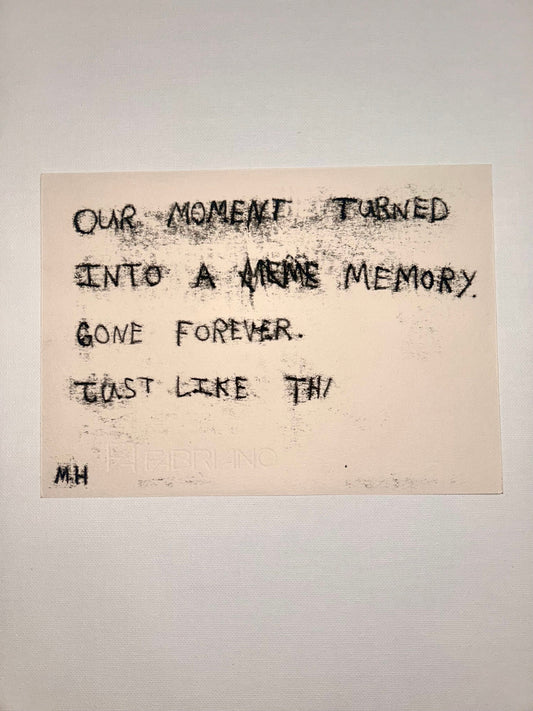 OUR MOMENT TURNED
INTO A MEME MEMORY.
GONE FOREVER.
JUST LIKE THI
FABRIANO
MH